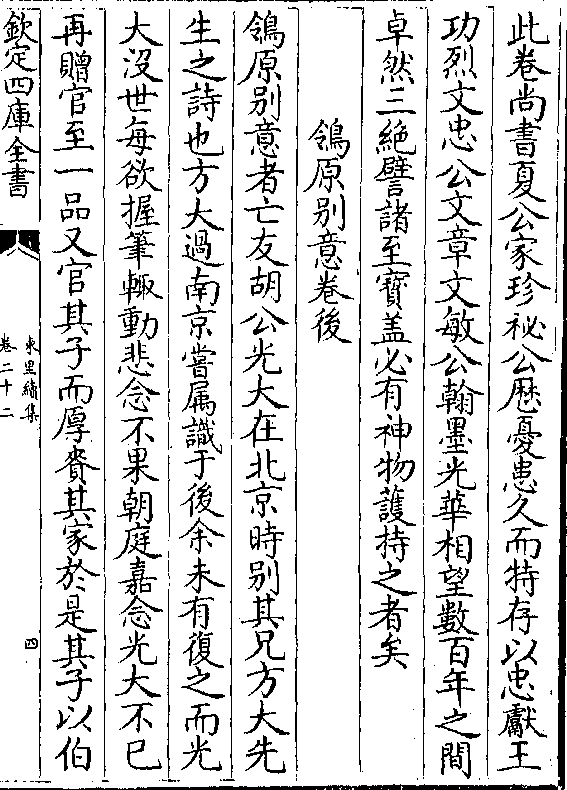 此卷尚書夏公家珍祕公歴憂患久而特存以忠獻王
功烈文忠公文章文敏公翰墨光華相望數百年之間
卓然三絶譬諸至寶盖必有神物護持之者矣
鴒原别意卷後
鴒原别意者亡友胡公光大在北京時别其兄方大先
生之詩也方大過南京嘗属識于後余未有復之而光
大沒世每欲握筆輙動悲念不果朝庭嘉念光大不已
再贈官至一品又官其子而厚賚其家於是其子以伯
欽定四庫全書
東里續集
卷二十二
四